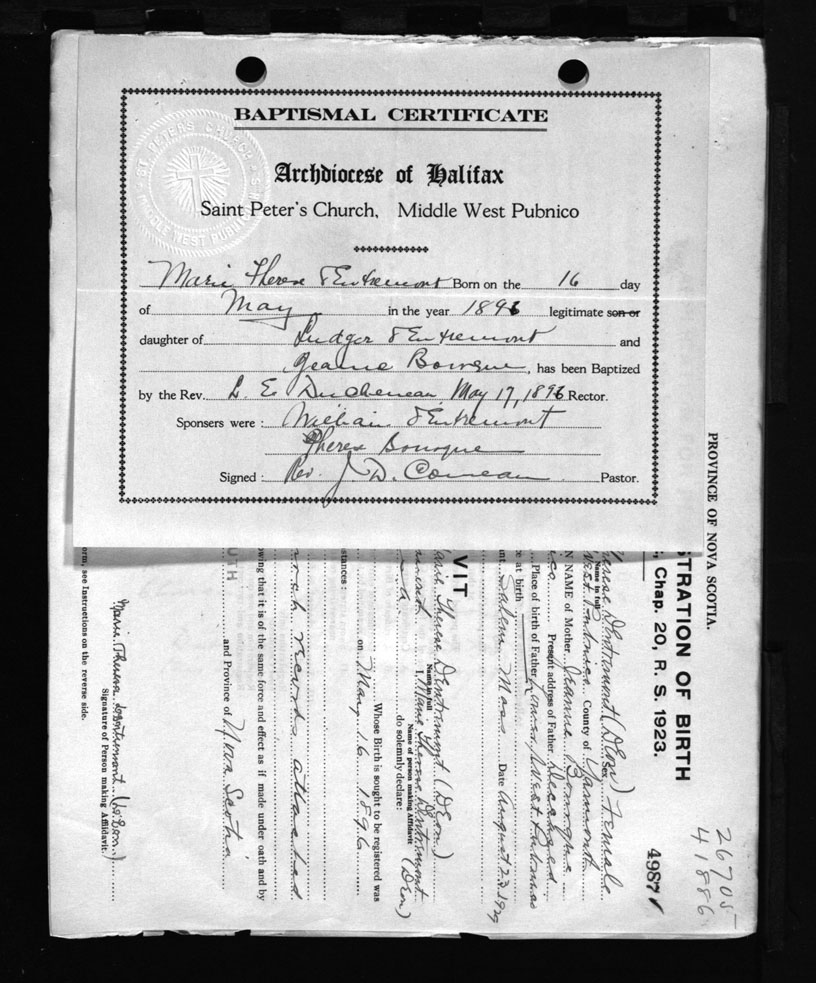 BAPTISMAL CERTIFICATE
Archdiocese of Halifax
Saint Peter's Church, Middle West Pubnico
ST. PETERS CHURCH
MIDDLE WEST PUBNICO
Marie Therese d'Entremont Born on the 16 day
of May in the year 1896 legitimate son or
daughter of Ludger d'Entremont and
Jeanne Bourque, has been Baptized
by the Rev. L. E. Ducheneau, May 17, 1896 Rector.
Sponsers were : William d'Entremont
Therese Bourque
Signed : Rev. J. D. Comeau Pastor.
PROVINCE OF NOVA SCOTIA.
STRATION OF BIRTH
Chap. 20, R. S. 1923.
26705
41886
4987
Dentremont (Deon) Sex Female
Name in full
West Pubnico County of Yarmouth
NAME of Mother Jeanne Bourque
Present address of Father Deceased
Place of birth of Father Lower West Pubnico
at birth
Salem Mass Date August 23, 19
VIT
Therese Dentremont (Deon)
Name in full
I, Marie Therese Dentremont (Deon)
Name of person making Affidavit
do solemnly declare:
Whose Birth is sought to be registered was
on May 16 1896
stances:
records attached
owing that it is of the same force and effect as if made under oath and by
UTH
and Province of Nova Scotia
Marie Therese Dentremont (Deon)
Signature of Person making Affidavit.
orm, see Instructions on the reverse side.